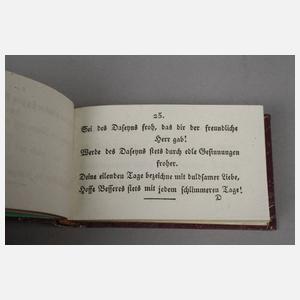 25.
Sei des Daseyns froh, das dir der freundliche
Herr gab!
Werde des Daseyns stets durch edle Gesinnungen
froher.
Deine eilenden Tage bezeichne mit duldsamer Liebe,
Hoffe Besseres stets mit jedem schlimmeren Tage!
D